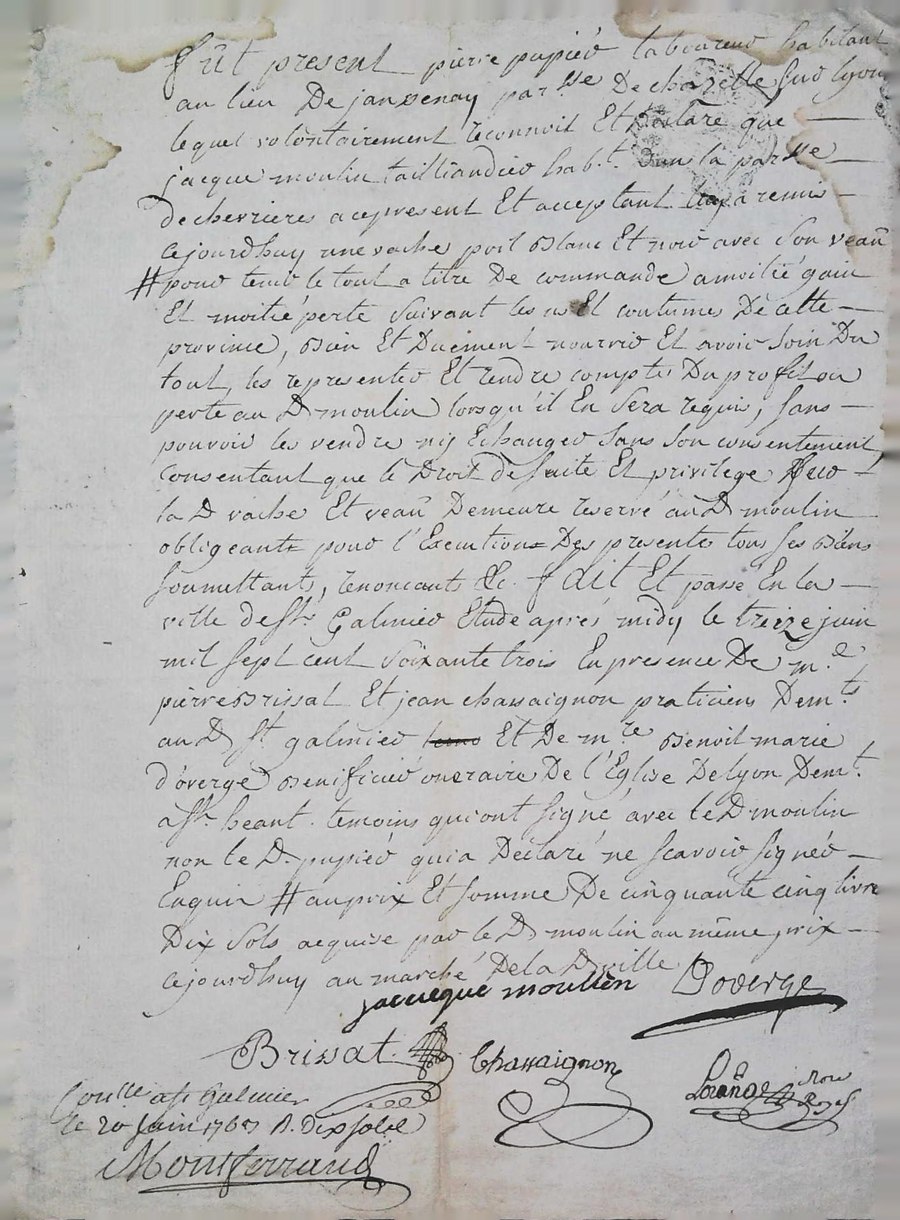 fût present pierre pupied laboureur habitant
au lieu De janzenay par.sse De chazelle sur Lyon
lequel volontairement reconnoit Et Déclare que
jacque moulin tailliandier hab.t dans la par.sse
de chevrieres a cepresent Et acceptant luy a remis
cejourdhuy une vache poil Blanc Et noir avec son veaû
# pour tenir le tout a titre De commande a moitié gain
Et moitié perte suivant les us Et coutumes De cette
province, Bien Et Duement nourrir Et avoir soin Du
tout, les representer Et rendre compte Du profit ou
perte au D moulin lorsqu'il En sera requis, sans
pouvoir les vendre nij Echanger sans son consentement
consentant que le Droit de suite Et privilege sur
la D vache Et veaû Demeure reservé au D moulin
obligeants pour l'Execution Des presentes tous ses Biens
soumettants, renoncants &c. fait Et passé En la
ville de St Galmier Etude aprés midy le treize juin
mil sept cent soixante trois En presence De m.e
pierre Brissat Et jean chassaignon praticiens Dem.ts
au D St galmier Et De m.re Benoit marie
d'overge Benificier oneraire De l'Eglise De Lyon Dem.t
a St heant. temoins qui ont signé avec le D moulin
non le D. pupied qui a Declaré ne scavoir signer
Enquis # au prix Et somme De cinquante cinq livre
Dix sols acquise par le D moulin au même prix
cejourdhuy au marché De la D ville
jacueque moullen Doverge
Brissat. Chassaignon
Coñlle a St Galmier
le 20 juin 1763 R. Dix sols
Montferrand